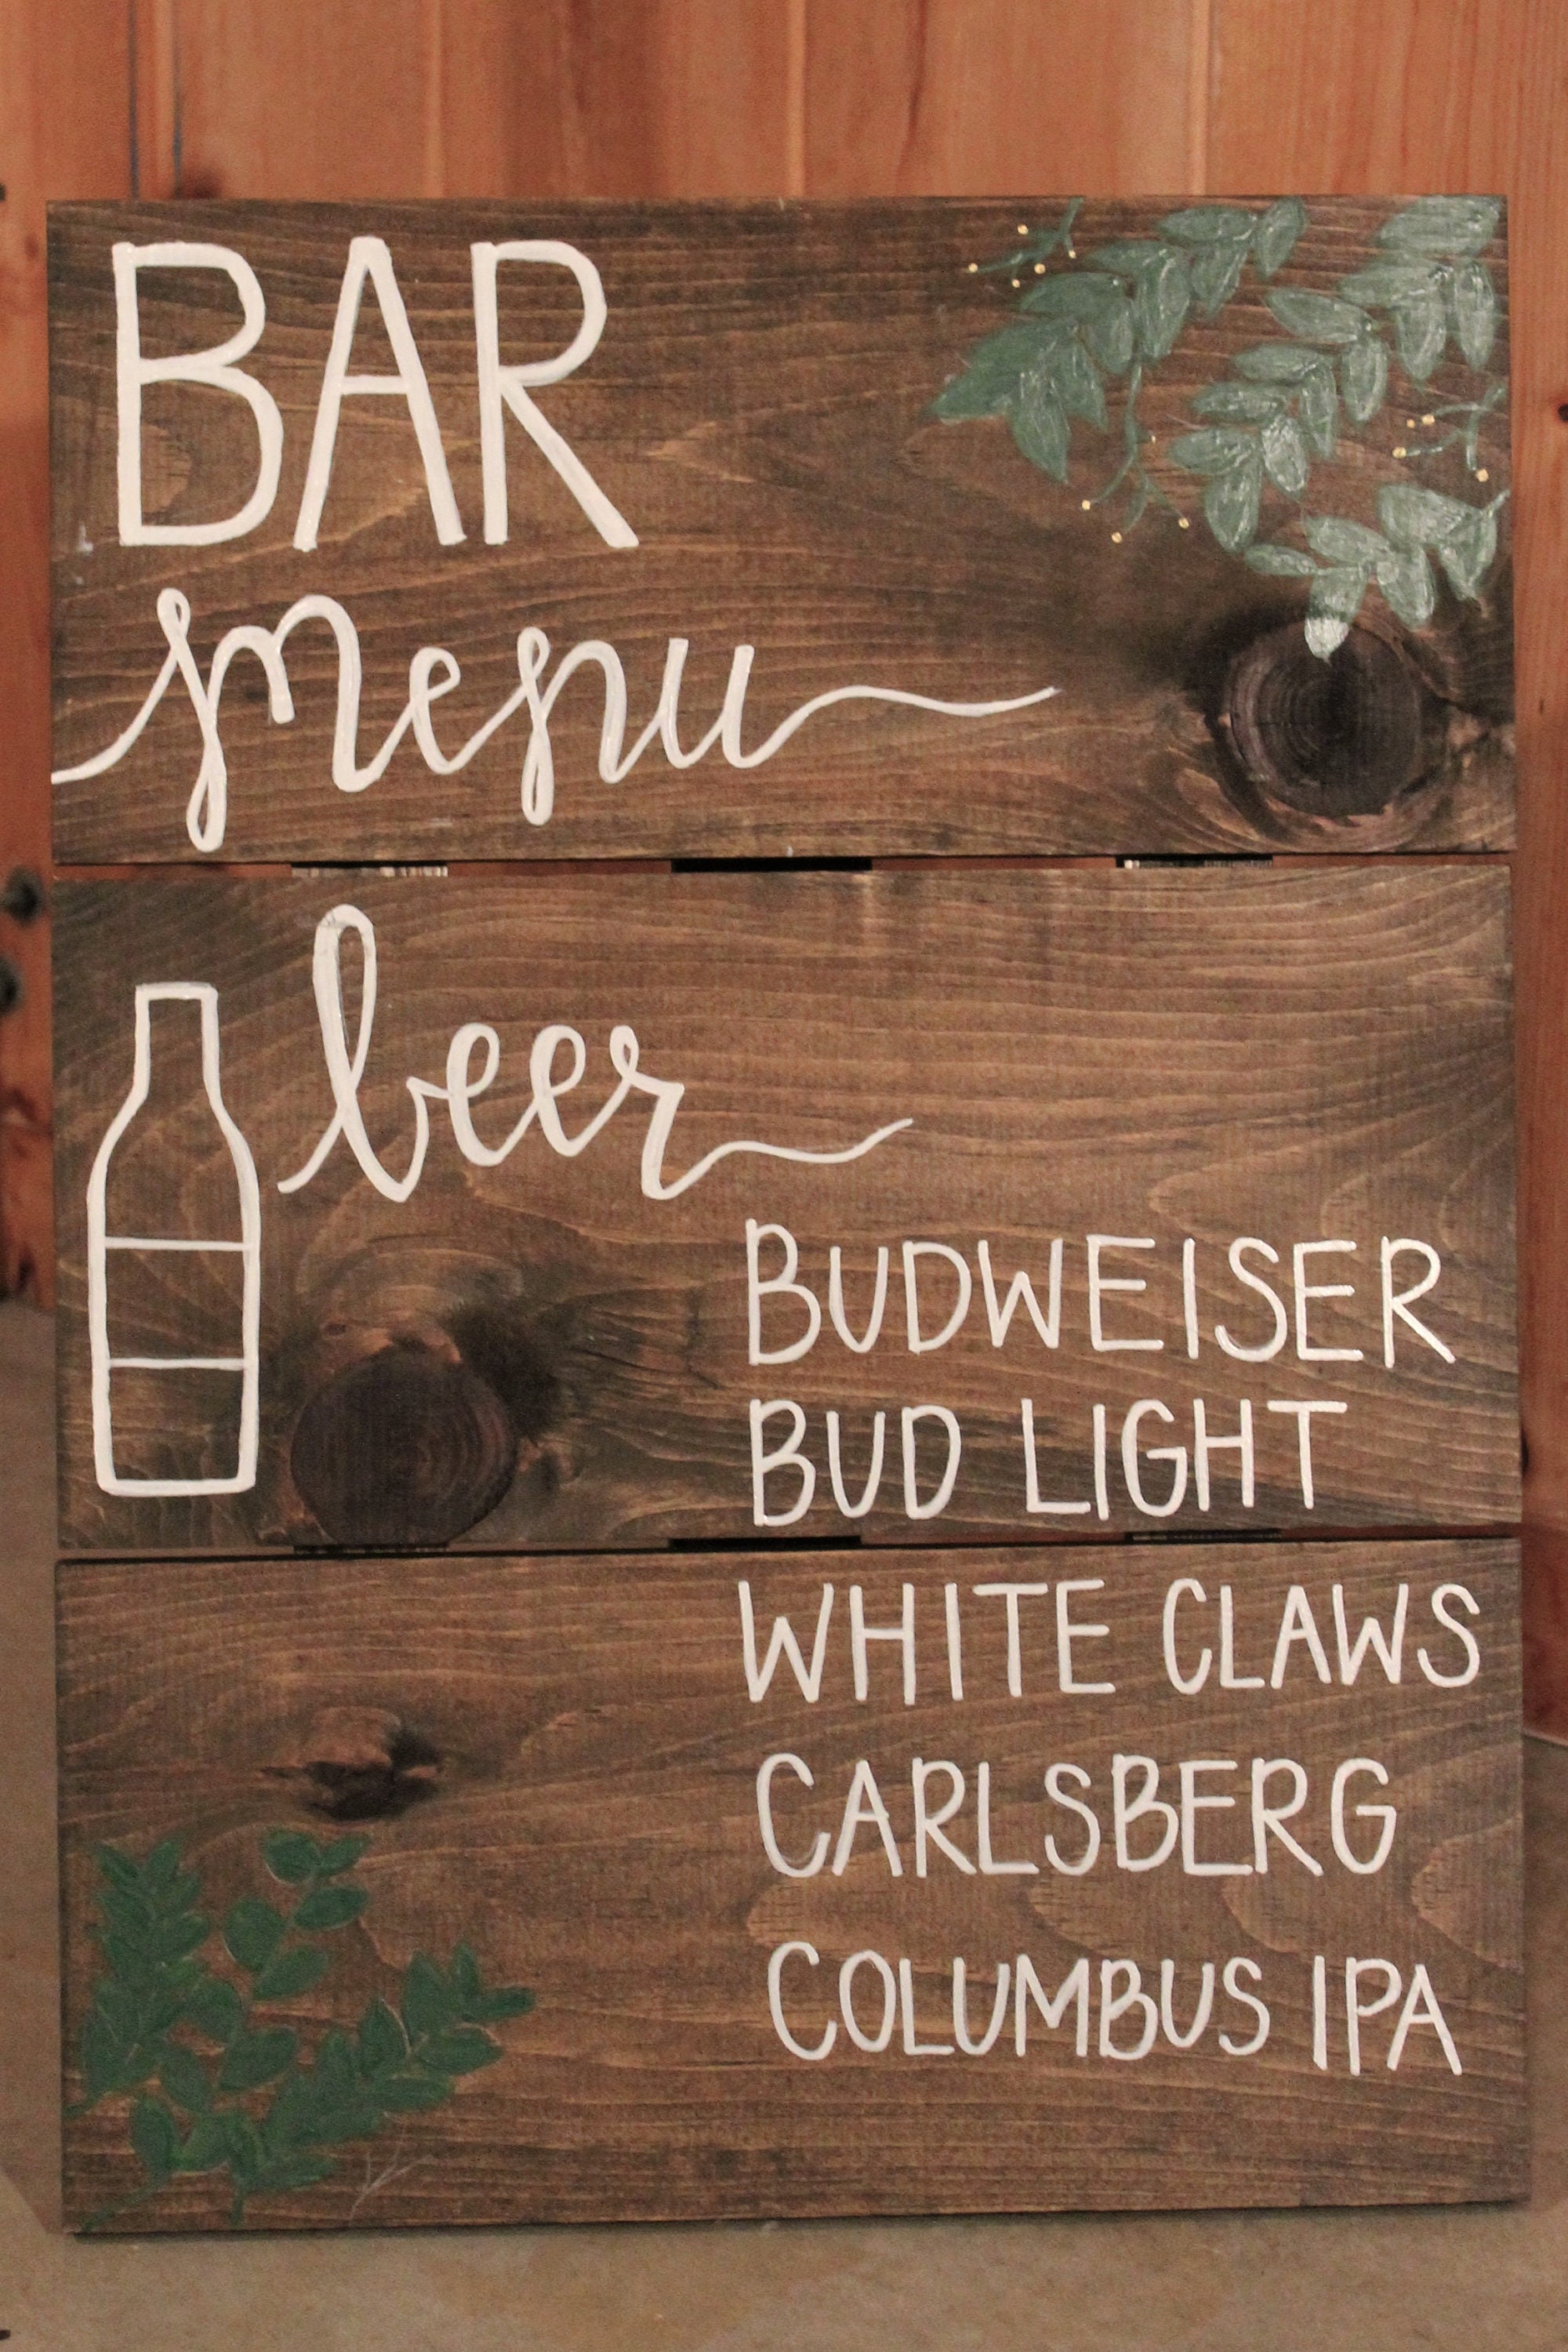 BAR
menu
beer
BUDWEISER
BUD LIGHT
WHITE CLAWS
CARLSBERG
COLUMBUS IPA